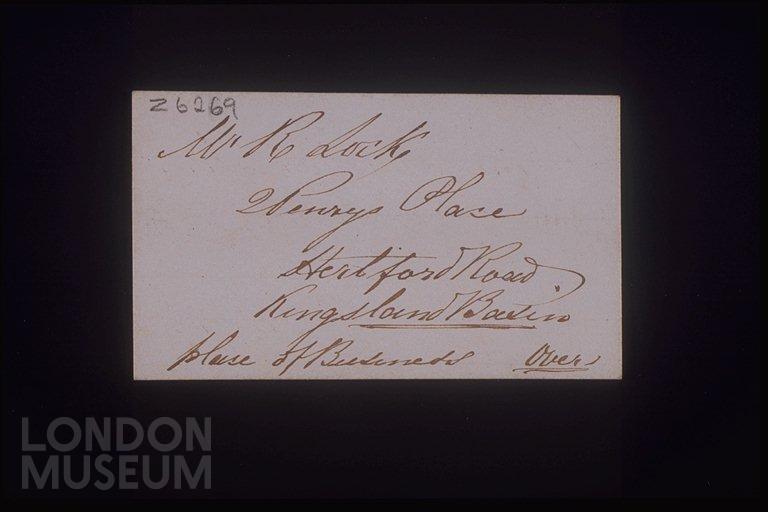 Z6269
Mr R Lock
2 Penrys Place
Hertford Road.
Kingsland Basin
place of Business Over
LONDON
MUSEUM